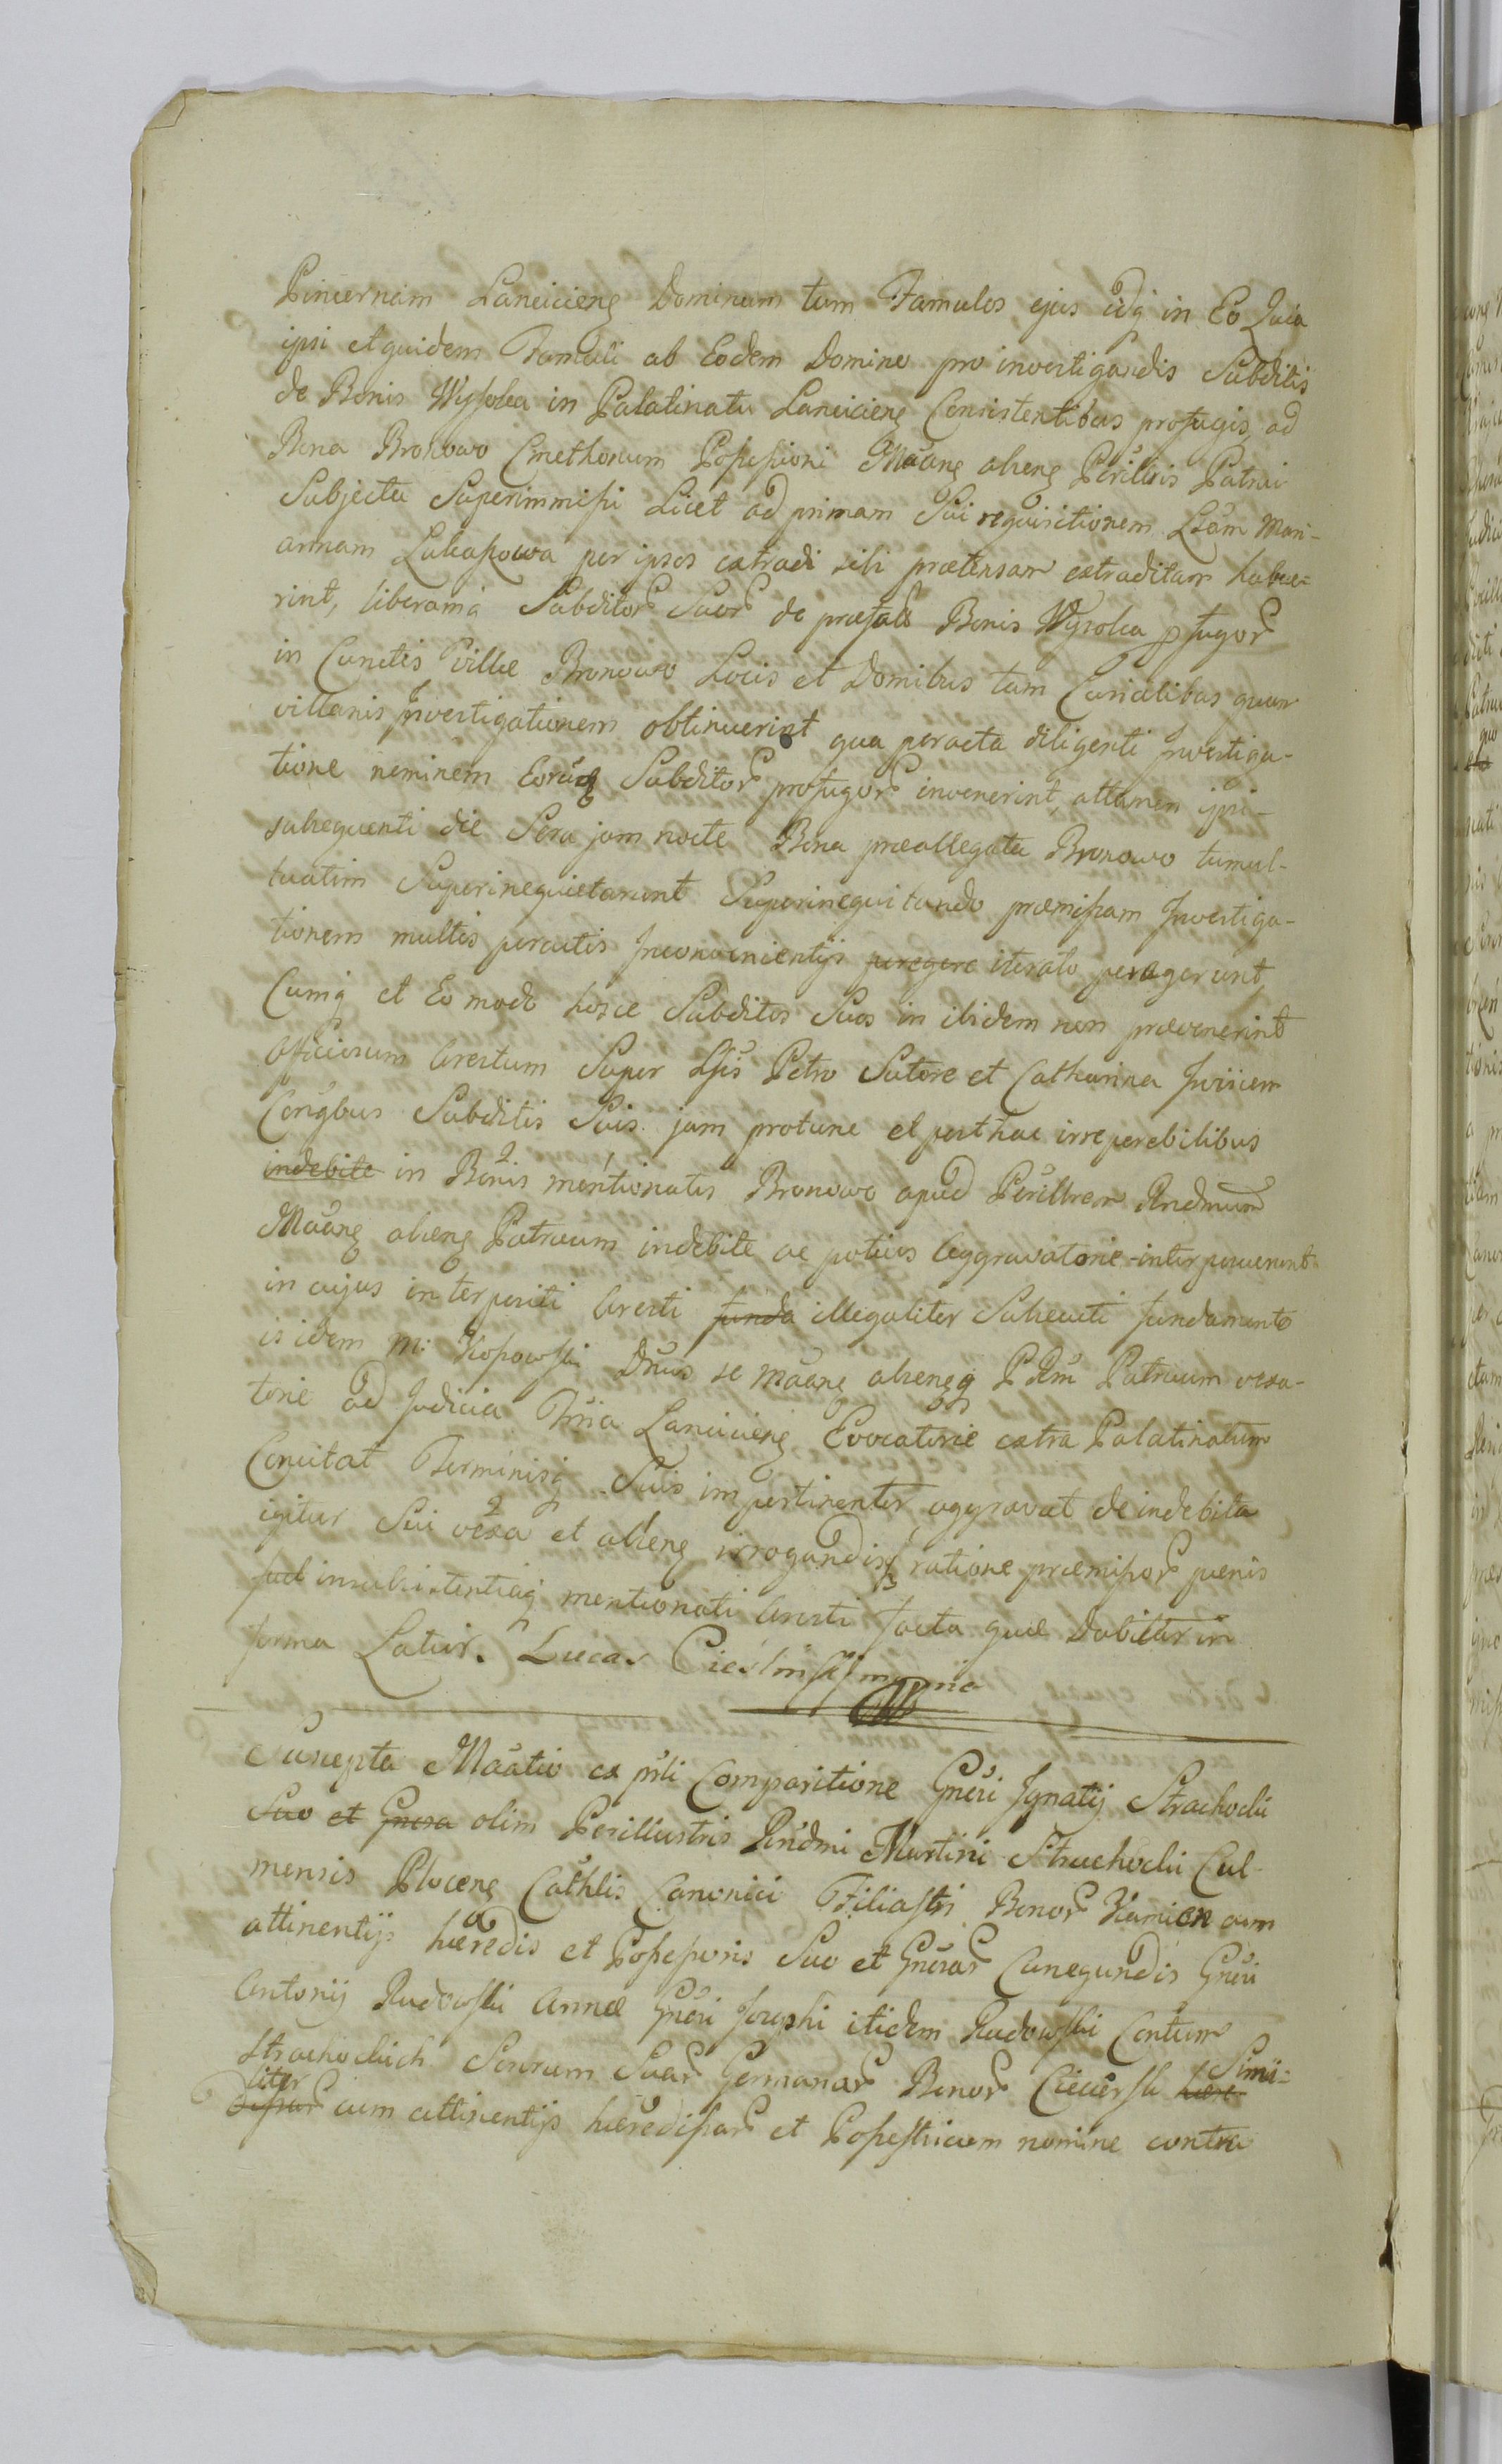 Pincernam Lanciciens Dominum tum Famulos ejus idq in Eo Quia
ipsi et quidem Famuli ab Eodem Domino pro investigandis Subditis
de Bonis Wysoka in Palatinatu Lanciciens Consistentibus profugis, ad
Bona Bronowo Cmethonum Possessioni Maans aliens Perillris Patrui
Subjecta Superimmissi Licet ad primam Sui requisitionem Lsam Mari-
annam Lukaszowa per ipsos extradi sibi praetensam extraditam habue-
rint, liberamq Subditor Suor de praefatis Bonis Wysoka pfugor
in Cunctis villae Bronowo Locis et Domibus tam Curialibus quam
villanis Investigationem obtinuerint qua peracta diligenti Investiga-
tione neminem Eorumq Subditor profugor invenerint, attamen ipsi
subsequenti die Sera jam nocte Bona praeallegata Bronowo tumul-
tuatim Superinequietarunt Superinequitando praemissam Investiga-
tionem multis peractis Inconvenientijs peregere iterato peragerunt,
Cumq et Eo modo hosce Subditos Suos in ibidem non praevenerint
officiosum Arestum Super Lsis Petro Sutore et Catharina Invicem
Conjgbus Subditis Suis jam protunc et posthac irreperebilibus
indebite in Bonis mentionatis Bronowo apud Perillrem Rndmum
Maans aliens Patruum indebite ac potius Aggravatorie interposuerunt
in cujus interpositi Aresti funda illegaliter Subsecuti fundamento
is idem M: Kossowski Dnus se Maans aliensq PRdm Patruum vexa-
torie ad Judicia Tria Lanciciens Evocatorie extra Palatinatum
Concitat Terminisq Suis impertinenter aggravat de indebita
igitur Sui vexa et aliens irrogandisq ratione praemissor paenis
sed insubsistentiaq mentionati Aresti facta quae dabitur in
forma Latior. Lucas Cieslinski mpria
Suscepta Maatio ex psti Comparitione Gnesi Ignatij Strachocki
Suo et Gnosa olim Perillustris Rndmi Martini Strachocki Cul-
mensis Plocens Cathlis Canonici Filiastri Bonor Kamien cum
attinentijs haeredis et Possessoris Suo et Gnosar Cunegundis Gnosi
Antonij Rudowski Annae Gnosi Josephi itidem Rudowski Contum
Strachockich Sororum Suar Germanar Bonor Ciecierski haere Simi-
liter
dissar cum attinentijs haeredissar et Possestricum nomine contra